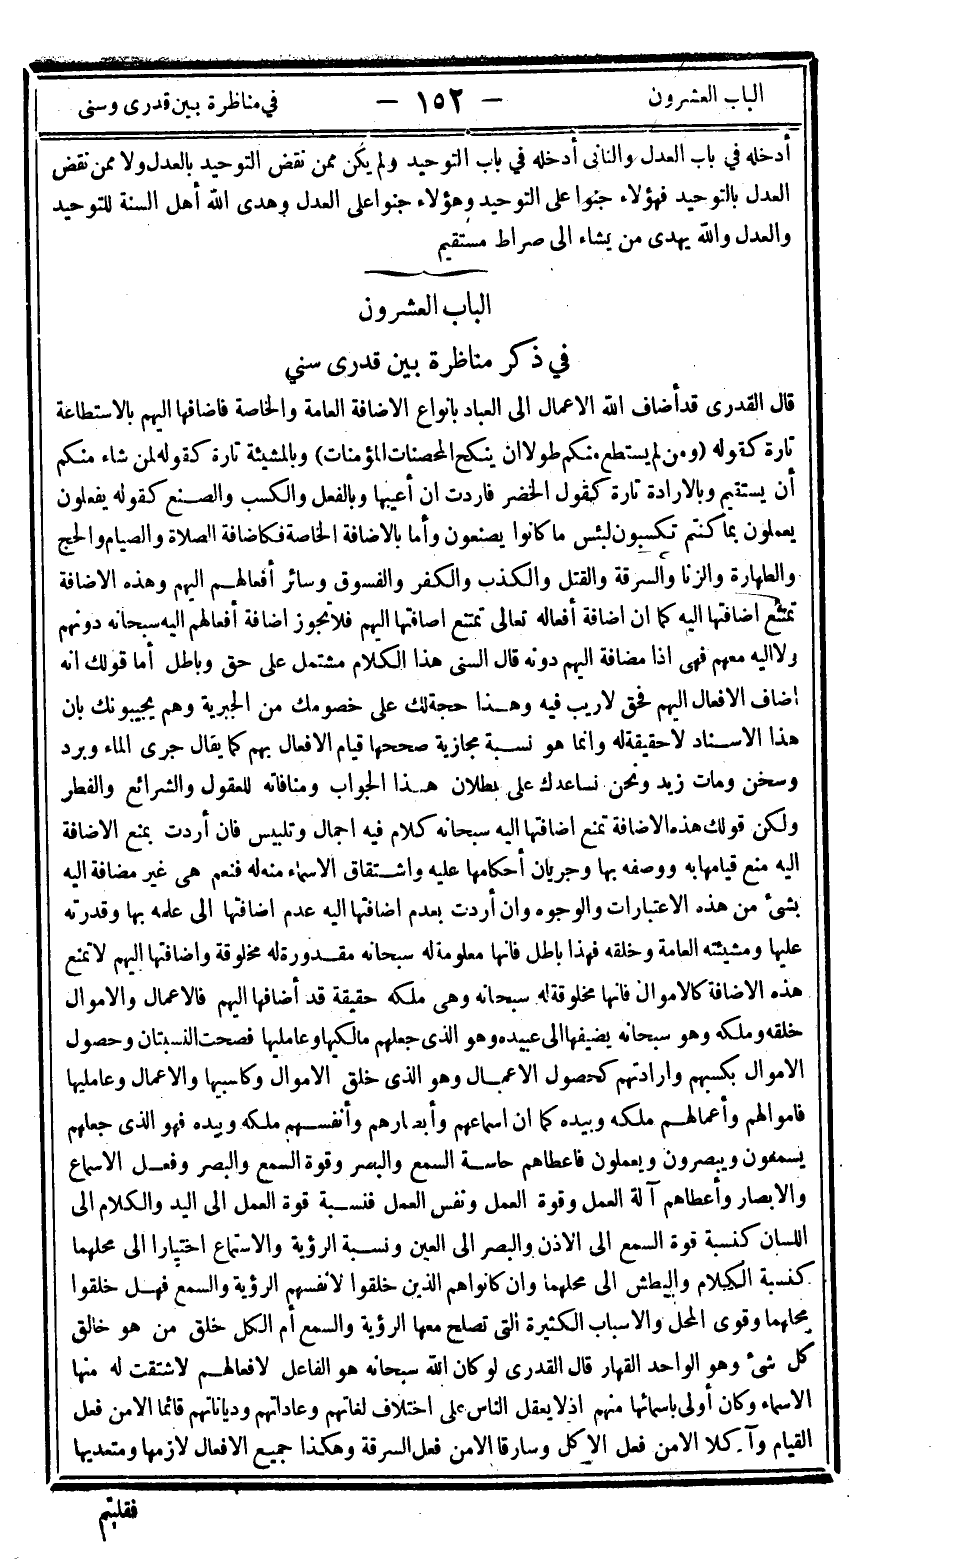 الباب العشرون — ١٥٢ — في مناظرة بين قدرى وسنى
أدخله في باب العدل والثانى أدخله في باب التوحيد ولم يكن ممن نقض التوحيد بالعدل ولا ممن نقض
العدل بالتوحيد فهؤلاء جنوا على التوحيد وهؤلاء جنوا على العدل وهدى الله أهل السنة للتوحيد
والعدل والله يهدى من يشاء الى صراط مستقيم
الباب العشرون
في ذكر مناظرة بين قدرى سني
قال القدرى قد أضاف الله الاعمال الى العباد بانواع الاضافة العامة والخاصة فاضافها اليهم بالاستطاعة
تارة كقوله (ومن لم يستطع منكم طولا ان ينكح المحصنات المؤمنات) وبالمشيئة تارة كقوله لمن شاء منكم
أن يستقيم وبالارادة تارة كقول الخضر فاردت ان أعيبها وبالفعل والكسب والصنع كقوله يفعلون
يعملون بما كنتم تكسبون لبئس ما كانوا يصنعون وأما بالاضافة الخاصة فكاضافة الصلاة والصيام والحج
والطهارة والزنا والسرقة والقتل والكذب والكفر والفسوق وسائر أفعالهم اليهم وهذه الاضافة
تمتنع اضافتها اليه كما ان اضافة أفعاله تعالى تمتنع اضافتها اليهم فلا تجوز اضافة أفعالهم اليه سبحانه دونهم
ولا اليه معهم فهى اذا مضافة اليهم دونه قال السنى هذا الكلام مشتمل على حق وباطل أما قولك انه
اضاف الافعال اليهم فحق لا ريب فيه وهذا حجة لك على خصومك من الجبرية وهم يجيبونك بان
هذا الاسناد لا حقيقة له وانما هو نسبة مجازية صححها قيام الافعال بهم كما يقال جرى الماء وبرد
وسخن ومات زيد ونحن نساعدك على بطلان هذا الجواب ومنافاته للعقول والشرائع والفطر
ولكن قولك هذه الاضافة تمنع اضافتها اليه سبحانه كلام فيه اجمال وتلبيس فان أردت بمنع الاضافة
اليه منع قيامها به ووصفه بها وجريان أحكامها عليه واشتقاق الاسماء منه له فنعم هى غير مضافة اليه
بشئ من هذه الاعتبارات والوجوه وان أردت بعدم اضافتها اليه عدم اضافتها الى علمه بها وقدرته
عليها ومشيئته العامة وخلقه فهذا باطل فانها معلومة له سبحانه مقدورة له مخلوقة واضافتها اليهم لا تمنع
هذه الاضافة كالاموال فانها مخلوقة له سبحانه وهى ملكه حقيقة قد أضافها اليهم فالاعمال والاموال
خلقه وملكه وهو سبحانه يضيفها الى عبيده وهو الذى جعلهم مالكيها وعامليها فصحت النسبتان وحصول
الاموال بكسبهم وارادتهم كحصول الاعمال وهو الذى خلق الاموال وكاسبيها والاعمال وعامليها
فاموالهم وأعمالهم ملكه وبيده كما ان اسماعهم وأبصارهم وأنفسهم ملكه وبيده فهو الذى جعلهم
يسمعون ويبصرون ويعملون فاعطاهم حاسة السمع والبصر وقوة السمع والبصر وفعل الاسماع
والابصار وأعطاهم آلة العمل وقوة العمل ونفس العمل فنسبة قوة العمل الى اليد والكلام الى
اللسان كنسبة قوة السمع الى الاذن والبصر الى العين ونسبة الرؤية والاستماع اختيارا الى محلهما
كنسبة الكلام والبطش الى محلهما وان كانوا هم الذين خلقوا لانفسهم الرؤية والسمع فهل خلقوا
محلهما وقوى المحل والاسباب الكثيرة التى تصلح معها الرؤية والسمع أم الكل خلق من هو خالق
كل شئ وهو الواحد القهار قال القدرى لو كان الله سبحانه هو الفاعل لافعالهم لاشتقت له منها
الاسماء وكان أولى باسمائها منهم اذ لا يعقل الناس على اختلاف لغاتهم وعاداتهم ودياناتهم قائما الا من فعل
القيام وآكلا الا من فعل الاكل وسارقا الا من فعل السرقة وهكذا جميع الافعال لازمها ومتعديها
فقلبتم